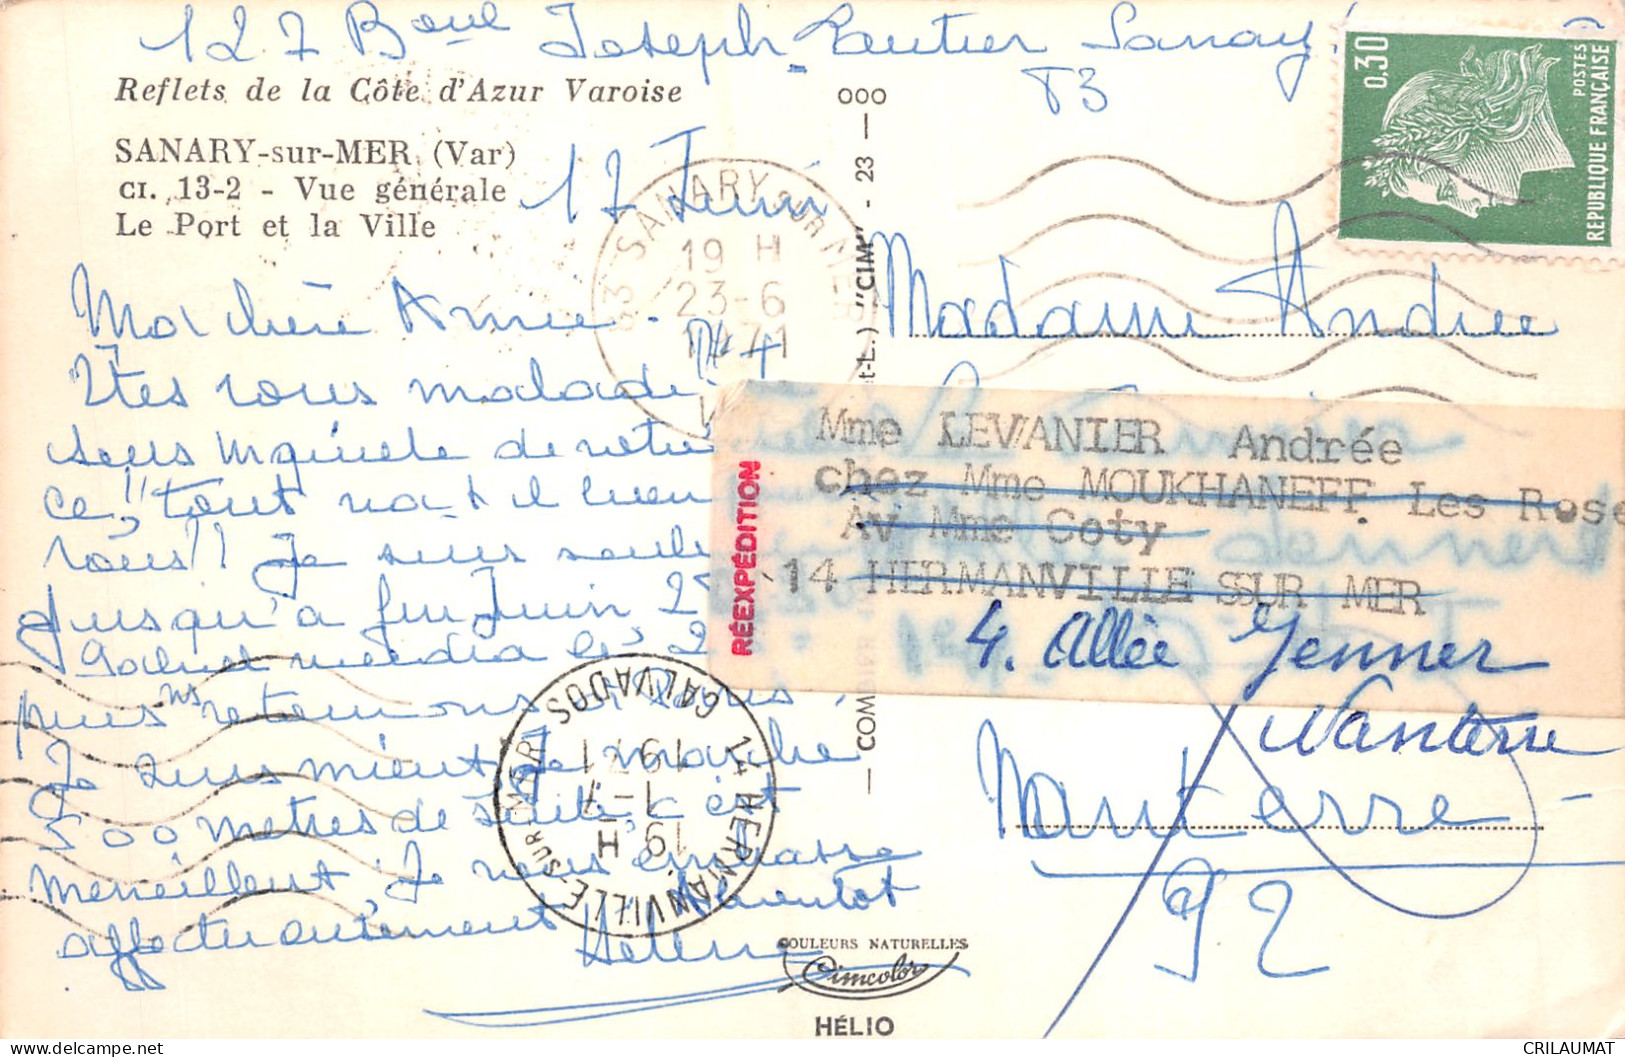 127 Boul Joseph Lautier Sanary
83
Reflets de la Côte d'Azur Varoise
SANARY-sur-MER (Var)
CI. 13-2 - Vue générale
Le Port et la Ville
17 Juin
Ma chère Amie.
Êtes vous malade
sans
ce, tout va t il bien
vous! Je suis seule
jusqu'à fin Juin
puis ns retournons
Je vais mieux je marche
500 mètres de suite, c'est
merveilleux, Je vous embrasse
affectueusement A bientôt
Hélène
83 SANARY SUR MER
19 H
23-6
1971
VAR
14 HERMANVILLE-SUR-MER
CALVADOS
19 H
1-7
1971
000
23
"CIM"
0,30
POSTES
REPUBLIQUE FRANÇAISE
Madame Andrée
RÉEXPÉDITION
Mme LEVANIER Andrée
chez Mme MOUKHANEFF Les Rose
Av Mme Coty
14 HERMANVILLE SSUR MER
4. Allée Jenner
Nanterre
Nanterre
92
COULEURS NATURELLES
Cimcolor
HÉLIO
CRILAUMAT